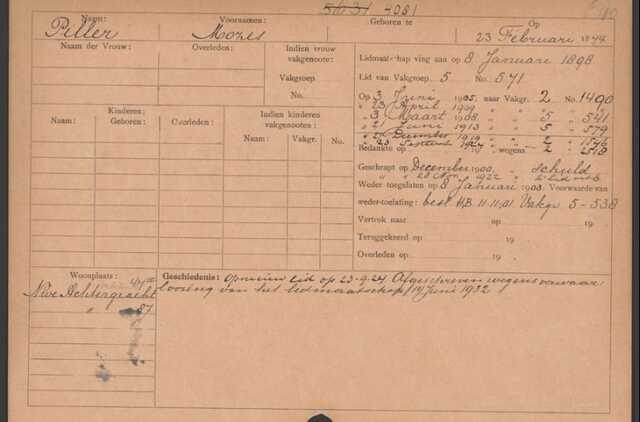 5631 -081
Naam: Voornamen: Geboren te Op
Piller Mozes 23 Februari 1877
Naam der Vrouw: Overleden: Indien vrouw vakgenoote:
Vakgroep.
No.
Lidmaatschap ving aan op 8 Januari 1898
Lid van Vakgroep. 5 No. 571
Kinderen: Indien kinderen vakgenooten:
Naam: Geboren: Overleden: Naam: Vakgr. No.
Op 3 Juni 1905 naar Vakgr. 2 No. 1490
" 23 April 1909 " "
" 3 Maart 1908 " " 5 " 541
" 21 Juni 1913 " " 5 " 579
" December 1919 " "
" 23 1924 " 2
Bedankte op 19 wegens
Geschrapt op December 1900 " schuld
" " 1922 "
Weder toegelaten op 8 Januari 1903 Voorwaarde van
weder-toelating: best. H.B. 11-11-01 Vakgr. 5-538
Vertrok naar op 19
Teruggekeerd op 19
Overleden op 19
Woonplaats:
Nwe Achtergracht
" 87
Geschiedenis: Opnieuw lid op 23-9-24. Afgeschreven wegens verwaar
loozing van het lidmaatschap, 14 Juni 1932